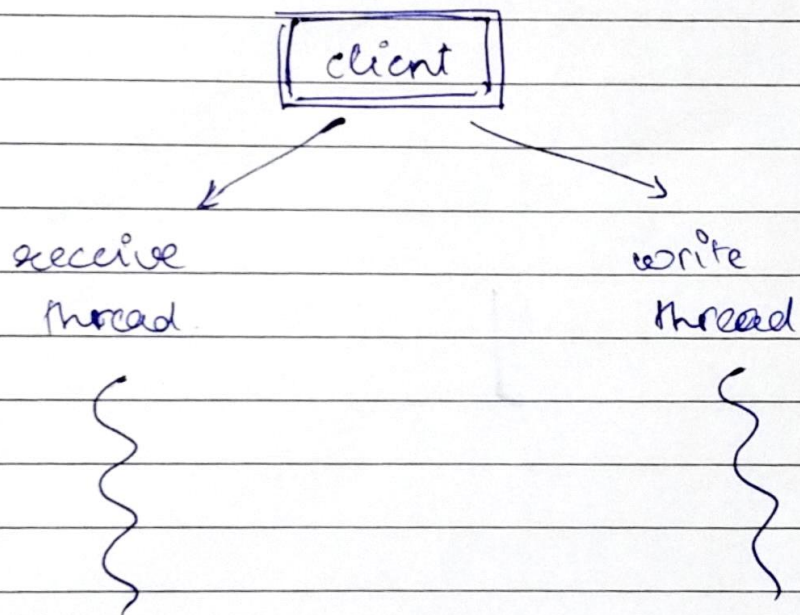 client
receive
thread
write
thread